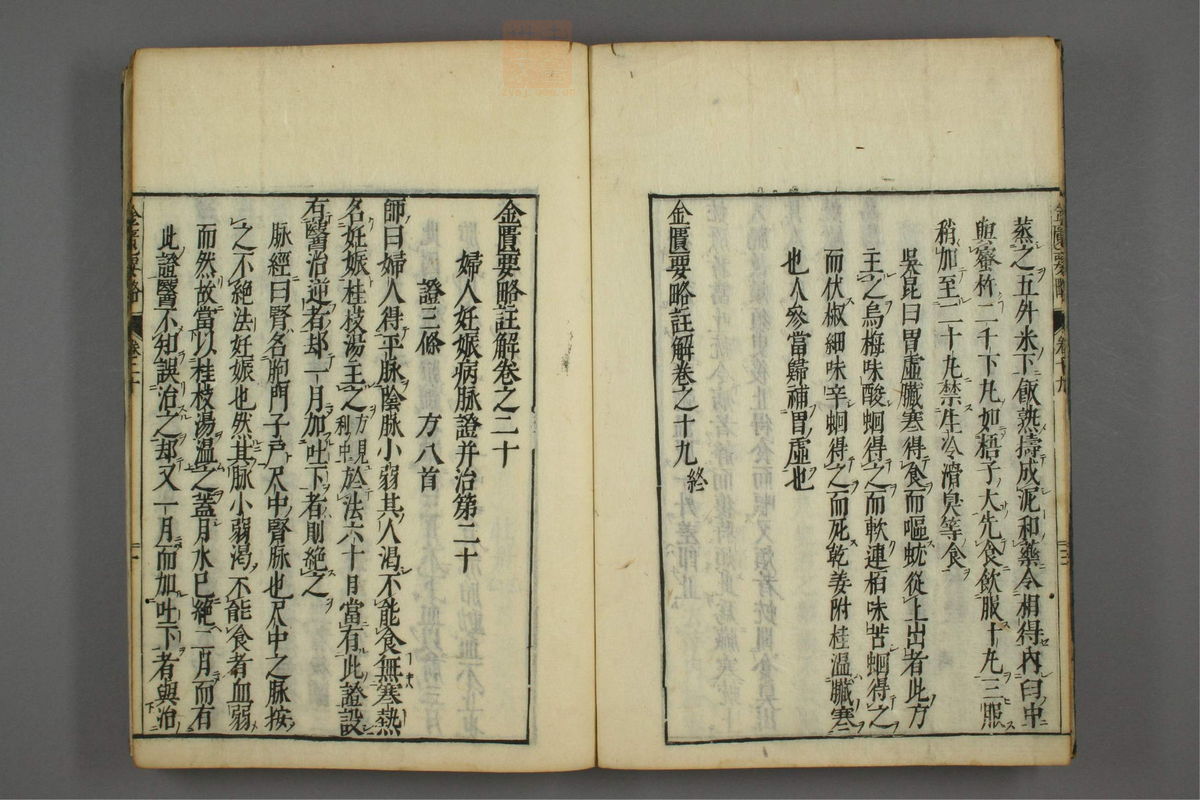 蒸之五升米下飯熟擣成泥和藥令相得內臼中
與蜜杵二千下丸如梧子大先食飲服十丸三服
稍加至二十丸禁生冷滑臭等食
吳昆曰胃虛臟寒得食而嘔蚘從上出者此方
主之烏梅味酸蛔得之而軟連栢味苦蛔得之
而伏椒細味辛蛔得之而死乾姜附桂溫臟寒
也人參當歸補胃虛也
金匱要略註解卷之十九 終
金匱要略 卷十九
金匱要略註解卷之二十
婦人妊娠病脉證并治第二十
證三條 方八首
師曰婦人得平脉陰脉小弱其人渴不能食無寒熱
名妊娠桂枝湯主之方見利中於法六十日當有此證設
有醫治逆者却一月加吐下者則絕之
脉經曰腎名胞門子戶尺中腎脉也尺中之脉按
之不絕法妊娠也然其脉小弱渴不能食者血弱
而然故當以桂枝湯溫之蓋月水已絕二月而有
此證醫不知誤治之却又一月而加吐下者與治
金匱要略 卷二十